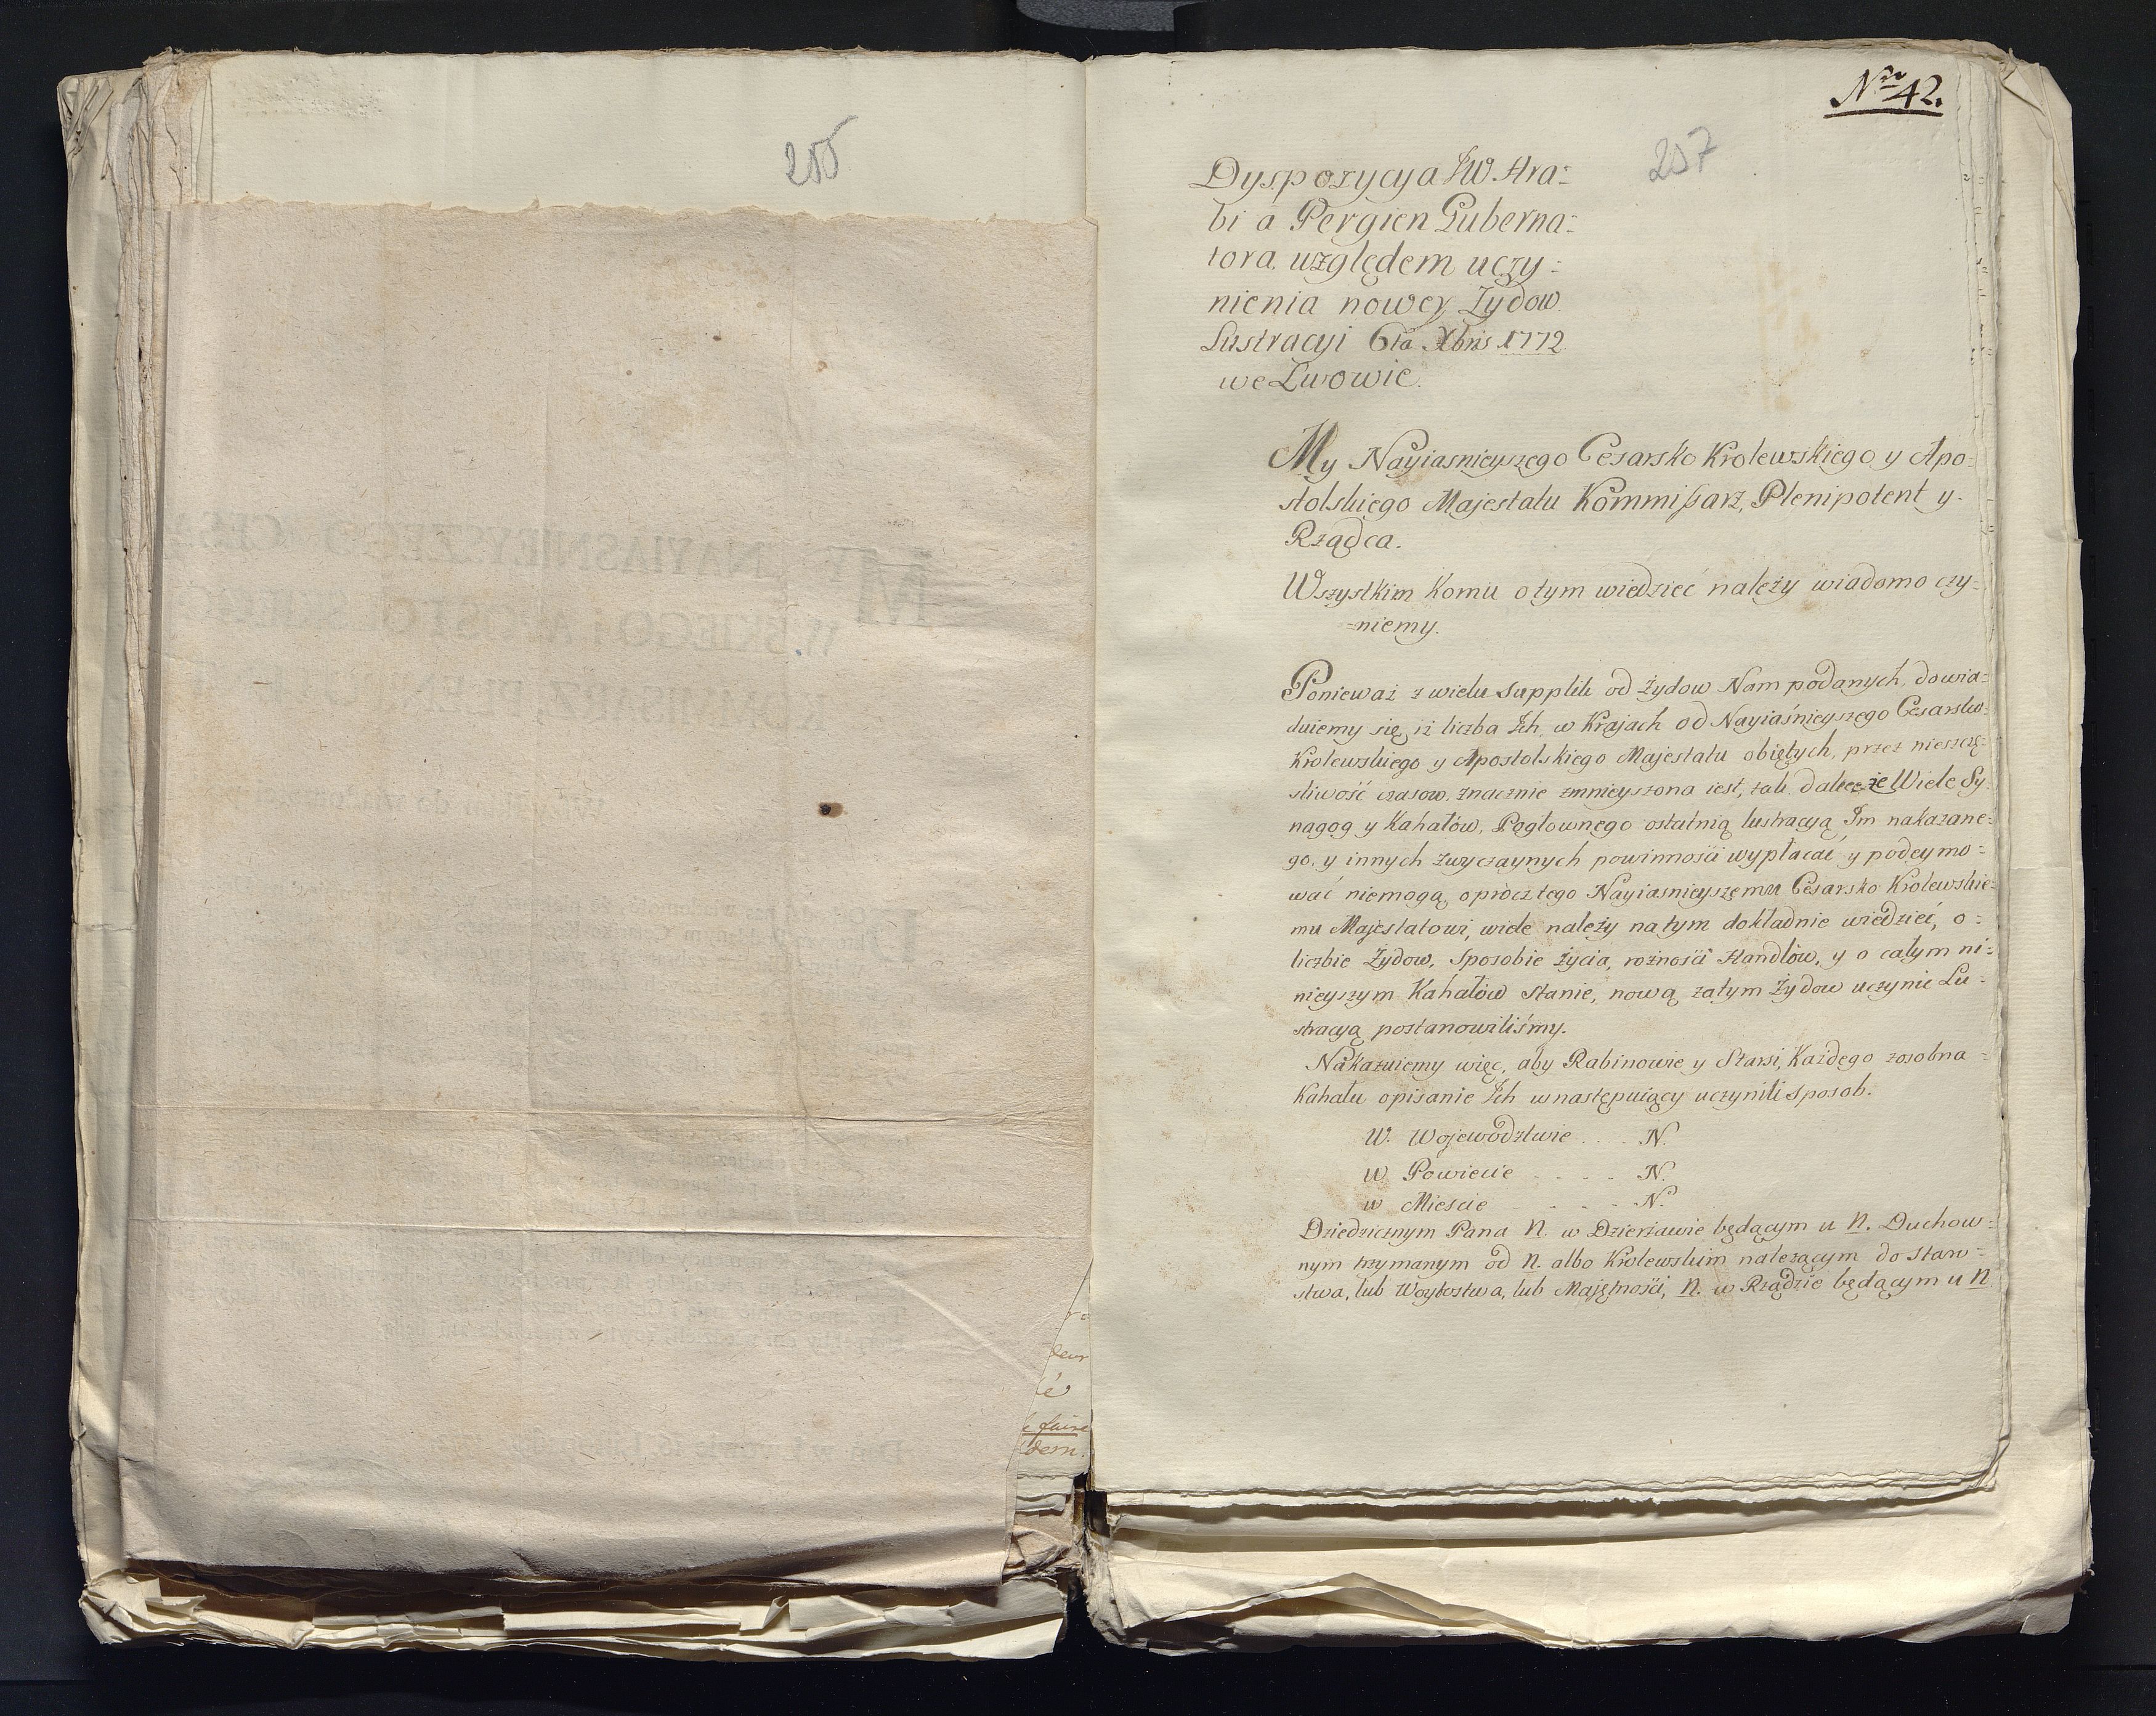 205
Nro 42.
207
Dyspozycya JW. Hra=
bi a Pergien Guberna=
tora, względem uczy=
nienia nowey Żydow.
Lustracyi 6ta Xbris 1772
we Lwowie.
My Nayiasnieyszego Cesarsko Krolewskiego y Apo=
stolskiego Majestatu Kommissarz, Plenipotent y
Rządca.
Wszystkim komu o tym wiedzieć należy wiadomo czy=
=niemy.
Ponieważ z wielu supplik od Żydow Nam podanych, dowia=
duiemy się, iż liczba Ich, w Krajach od Nayiaśnieyszego Cesarsko=
Krolewskiego y Apostolskiego Majestatu obiętych, przez nieszczę=
śliwość czasow, znacznie zmnieyszona iest, tak dalece że Wiele Sy=
nagog y Kahałów, Pogłownego ostatnią lustracyą Im nakazane=
go, y innych zwyczaynych powinności wypłacać y podeymo=
wać niemogą, oprócz tego Nayiasnieyszemu Cesarsko Krolewskie=
mu Majestatowi, wiele należy na tym dokładnie wiedzieć, o=
liczbie Żydow, Sposobie życia, rożności Handlów, y o całym ni=
nieyszym Kahałów Stanie, nową zatym Żydow uczynić Lu=
stracyą postanowiliśmy.
Nakazuiemy więc, aby Rabinowie y Starsi, Każdego zosobna=
Kahału opisanie Ich wnastępuiący uczynili sposob.
W. Wojewodztwie .... N.
W Powiecie .... N.
w Mieście .... N.
Dziedzicznym Pana N. w Dzierżawie będącym u N. Duchow=
nym trzymanym od N. albo Krolewskim należącym do Staro=
stwa, lub Woytostwa, lub Majętności, N. w Rządzie będącym u N.
deur
é
faire
dem.